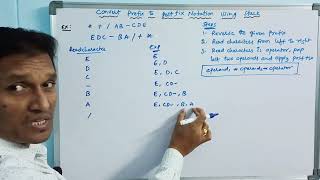 Convert Prefix to Postfix Notation Using Stack
ex: * + / AB - CDE
EDC - BA / + *
Steps
1. Reverse the given prefix
2. Read characters from left to right
3. Read character is operator, pop last two operands and apply postfix
operand, operand, operator
Readcharacter Exp
E E
D E, D
C E, D, C
- E, CD-
B E, CD-, B
A E, CD-, B, A
/